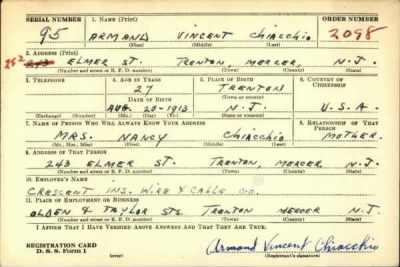 SERIAL NUMBER 1. NAME (Print) ORDER NUMBER
95 ARMAND VINCENT CHIACCHIO 2098
(First) (Middle) (Last)
2. ADDRESS (Print)
252 243 ELMER ST. TRENTON, MERCER, N.J.
(Number and street or R. F. D. number) (Town) (County) (State)
3. TELEPHONE 4. AGE IN YEARS 5. PLACE OF BIRTH 6. COUNTRY OF CITIZENSHIP
27 TRENTON
DATE OF BIRTH (Town or county)
AUG. 20-1913 N.J. U.S.A.
(Exchange) (No.) (Mo.) (Day) (Yr.) (State or country)
7. NAME OF PERSON WHO WILL ALWAYS KNOW YOUR ADDRESS 8. RELATIONSHIP OF THAT PERSON
MRS. NANCY CHIACCHIO MOTHER.
(Mr., Mrs., Miss) (First) (Middle) (Last)
9. ADDRESS OF THAT PERSON
243 ELMER ST. TRENTON, MERCER, N.J.
(Number and street or R. F. D. number) (Town) (County) (State)
10. EMPLOYER'S NAME
CRESCENT INS. WIRE & CABLE CO.
11. PLACE OF EMPLOYMENT OR BUSINESS
OLDEN & TAYLOR STS. TRENTON MERCER N.J.
(Number and street or R. F. D. number) (Town) (County) (State)
I AFFIRM THAT I HAVE VERIFIED ABOVE ANSWERS AND THAT THEY ARE TRUE.
REGISTRATION CARD
D. S. S. Form 1
Armand Vincent Chiacchio
(Registrant's signature)